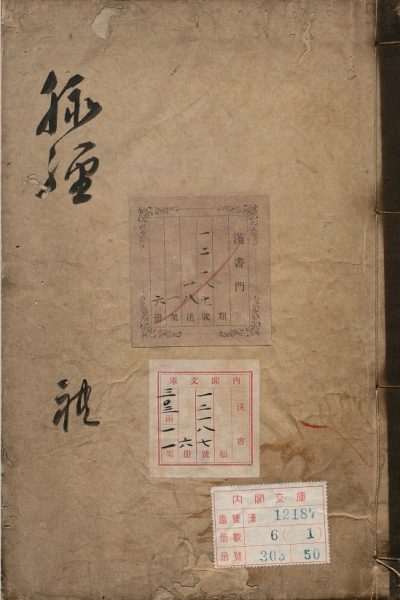 脉經
礼
漢書門
類
一二一八七號
一八函
一架
六冊
內閣文庫
漢書
類
一二一八七號
六冊
三〇三函
一一架
內閣文庫
番號 漢 12187
冊數 6 ( 1 )
函號 303 50